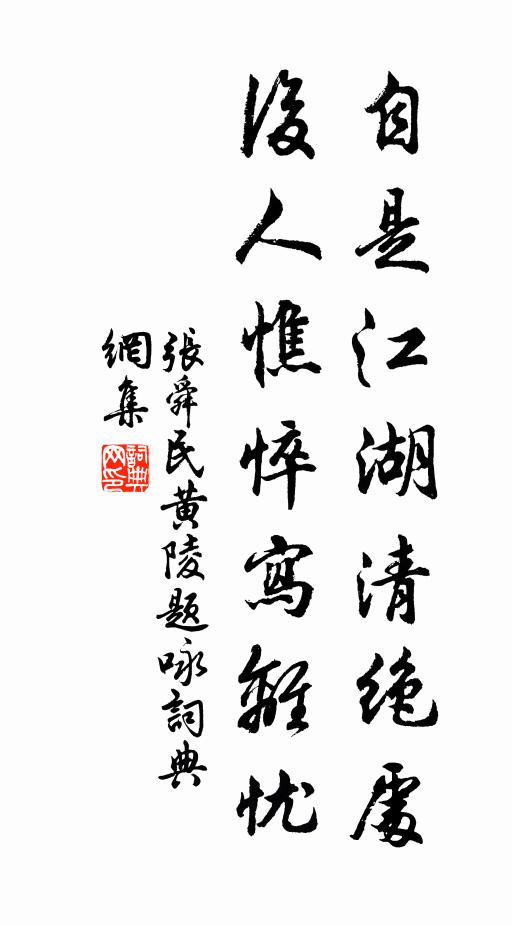 自是江湖清絶處
後人憔悴寫離忧
張舜民黄陵题咏詞典
網集
詞典
网印